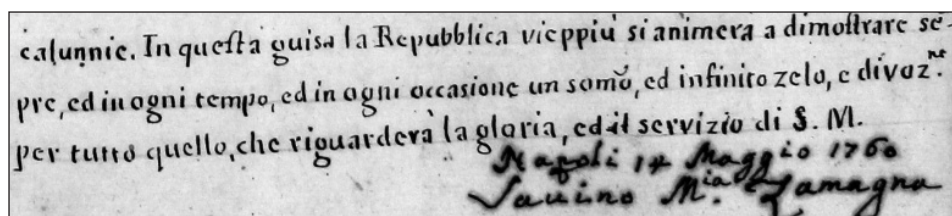 calunnie. In questa guisa la Repubblica vieppiù si animera a dimostrare sē-
pre, ed in ogni tempo, ed in ogni occasione un somō, ed infinito zelo, e divoz.ne
per tutto quello, che riguarderà la gloria, ed il servizio di S. M.
Napoli 14 Maggio 1760
Savino M.ia Zamagna